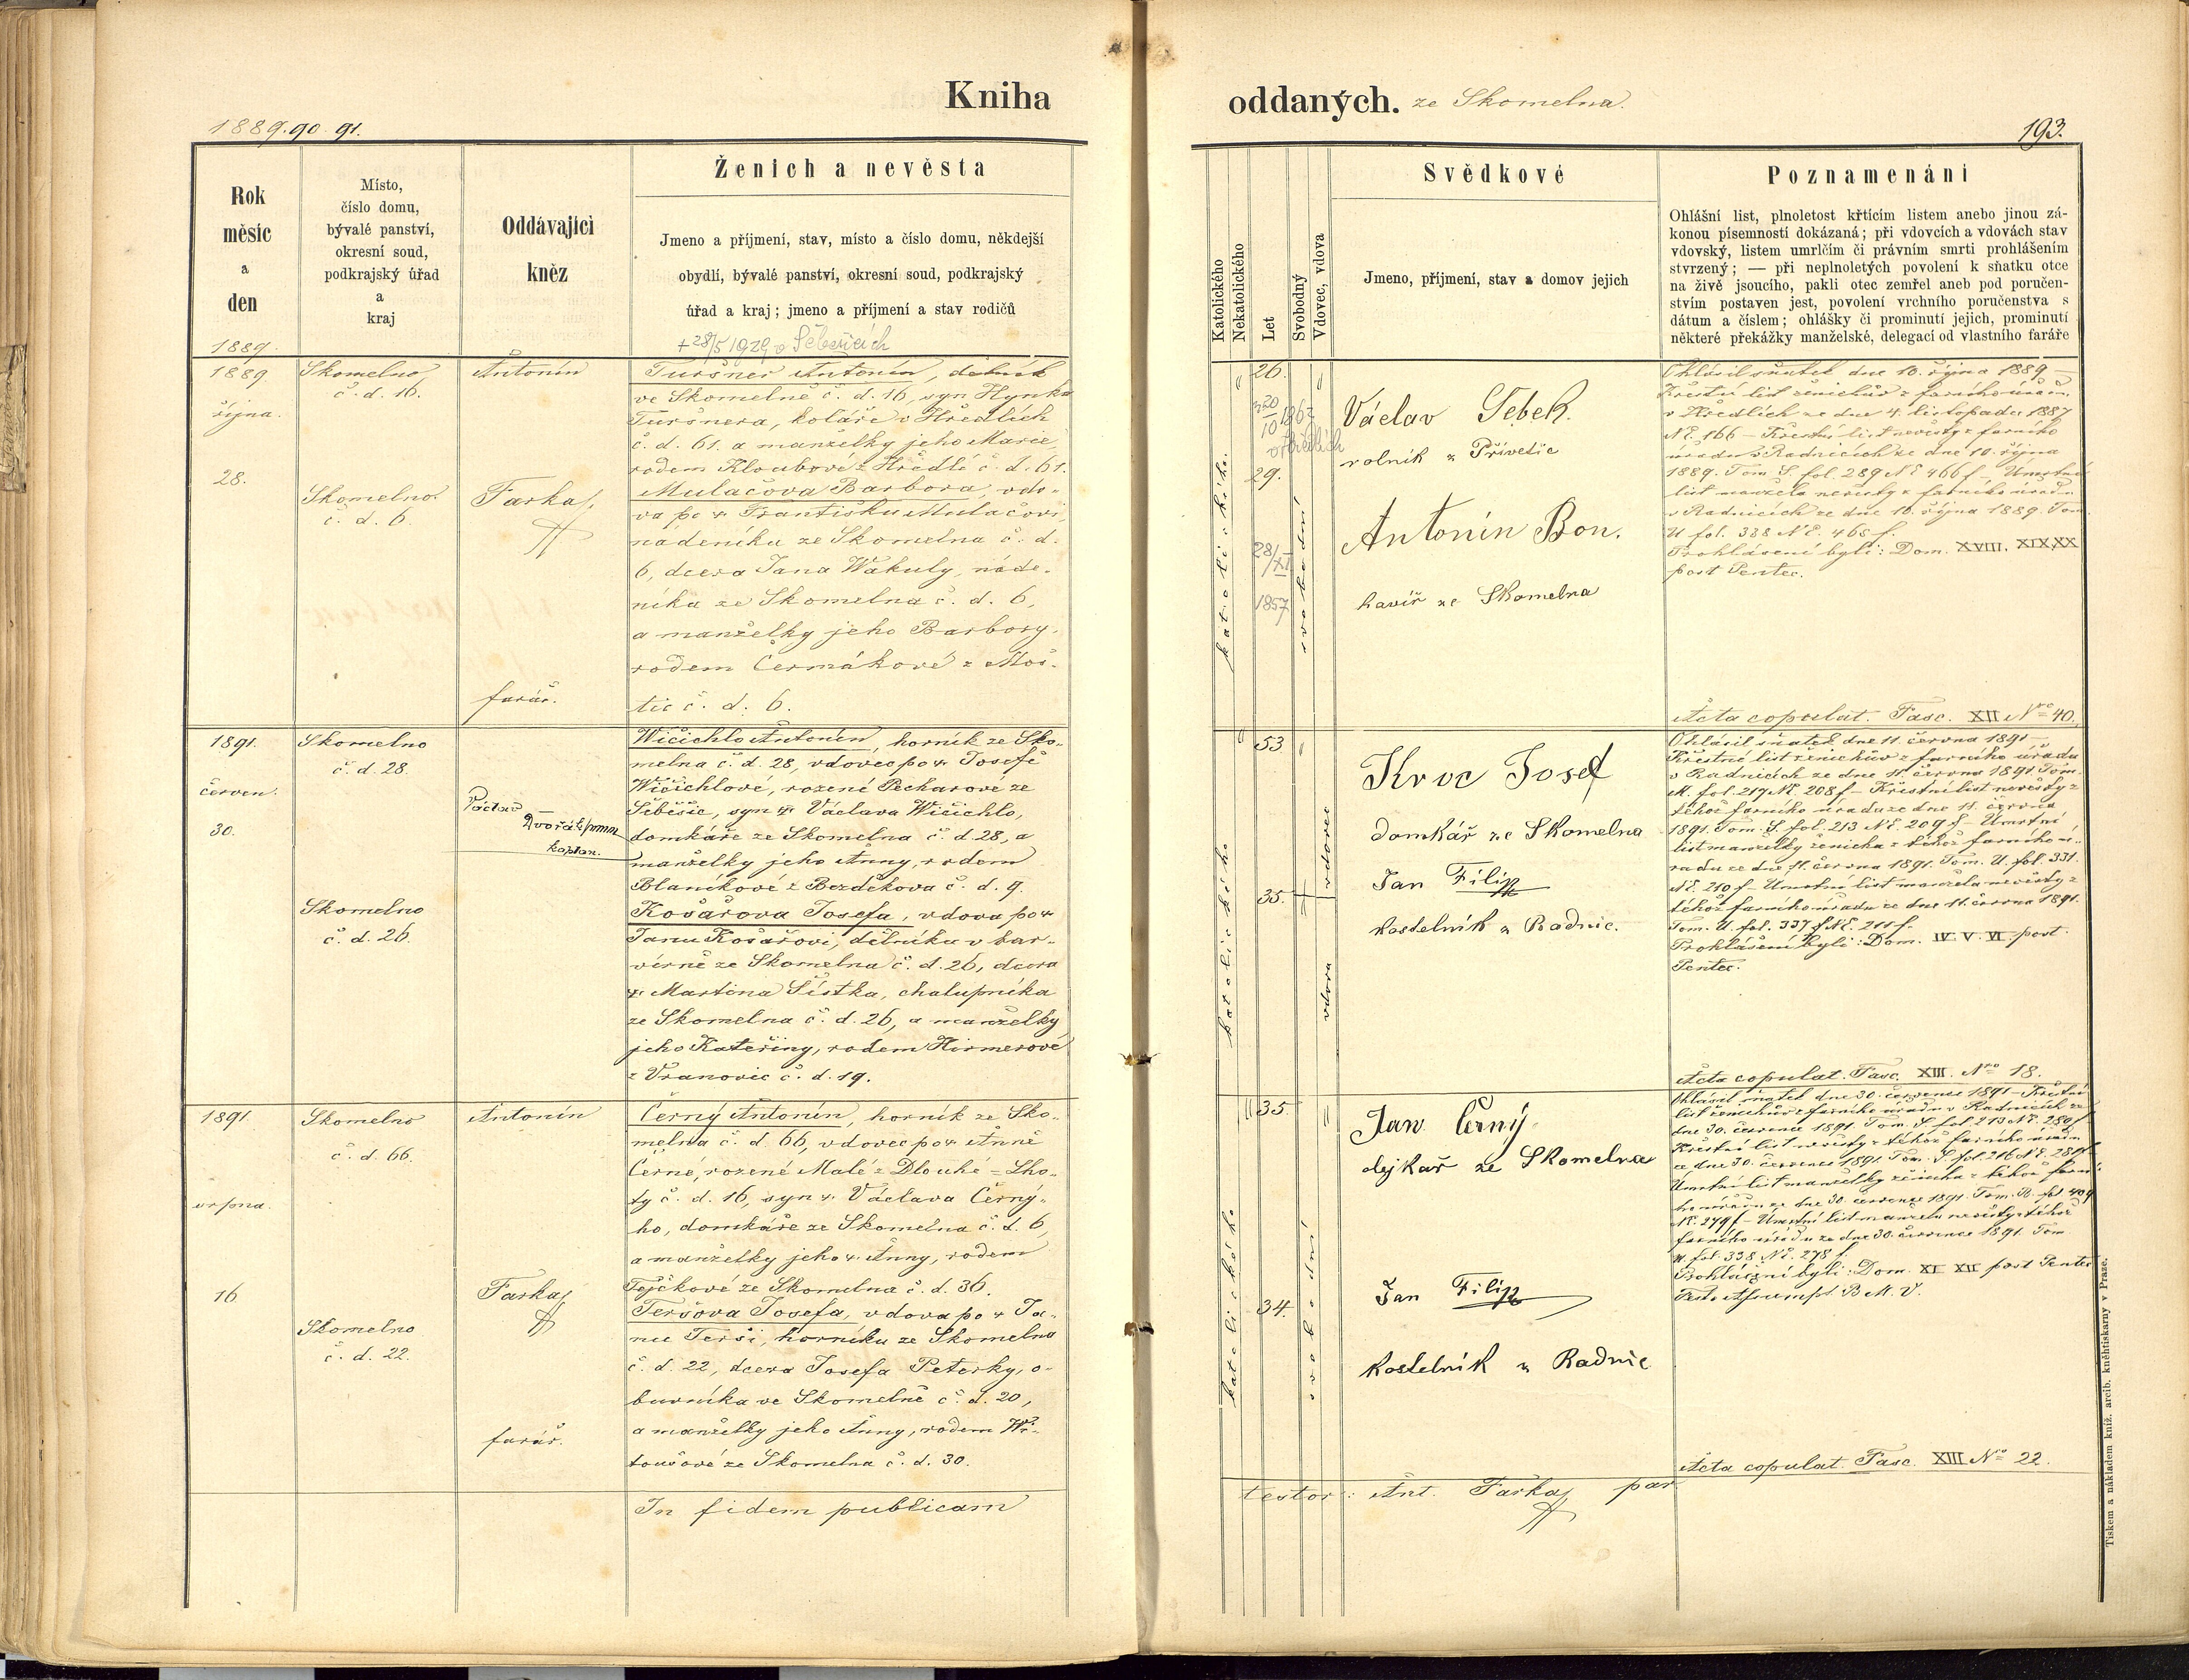 Kniha
1889. 90. 91.
Rok
měsíc
a
den
1889.
Místo,
číslo domu,
bývalé panství,
okresní soud,
podkrajský úřad
a
kraj
Oddávající
kněz
Ženich a nevěsta
Jmeno a příjmení, stav, místo a číslo domu, někdejší
obydlí, bývalé panství, okresní soud, podkrajský
úřad a kraj; jmeno a příjmení a stav rodičů
+ 28/5 1929 v
1889
října.
28.
Skomelno
č. d. 16.
Skomelno.
č. d. 6.
Antonín
Farkač,
farář.
Turšner Antonín, dělník
ve Skomelně č. d. 16, syn Hynka
Turšnera, koláře v Hředlích
č. d. 61. a manželky jeho Marie,
rodem Kloubové z Hředlí č. d. 61.
Mulačova Barbora, vdo-
va po + Františku Mulačovi,
nadeníku ze Skomelna č. d.
6, dcera Jana Wakuly, náde-
níka ze Skomelna č. d. 6,
a manželky jeho Barbory,
rodem Čermákové z Moš-
tic č. d. 6.
1891.
červen.
30.
Skomelno
č. d. 28.
Skomelno
č. d. 26.
Václav
Dvořák
kaplan.
Wičichlo Antonín, horník ze Sko-
melna č. d. 28, vdovec po + Josefě
Wičichlové, rozené Pecharové ze
Seběšic, syn + Václava Wičichlo,
domkáře ze Skomelna č. d. 28, a
manželky jeho Anny, rodem
Blaníkové z Bezděkova č. d. 9.
Kosařova Josefa, vdova po +
Janu Kosařovi, dělníku v bar-
vírně ze Skomelna č. d. 26, dcera
+ Martina Šístka, chalupníka
ze Skomelna č. d. 26, a manželky
jeho Kateřiny, rodem Hirmerové
z Vranovic č. d. 19.
1891.
srpna.
16
Skomelno
č. d. 66.
Skomelno
č. d. 22.
Antonín
Farkač
farář.
Černý Antonín, horník ze Sko-
melna č. d. 66, vdovec po + Anně
Černé, rozené Malé z Dlouhé = Lho-
ty č. d. 16, syn + Václava Černý-
ho, domkáře ze Skomelna č. d. 6,
a manželky jeho + Anny, rodem
Fejčkové ze Skomelna č. d. 36.
Teršova Josefa, vdova po + Ja-
nu Terši, horníku ze Skomelna
č. d. 22, dcera Josefa Peterky, o-
buvníka ve Skomelně č. d. 20,
a manželky jeho Anny, rodem
ze Skomelna č. d. 30.
In fidem publicam
oddaných. ze Skomelna.
193.
Katolického
Nekatolického
Let
Svobodný
Vdovec, vdova
Svědkové
Jmeno, příjmení, stav a domov jejich
Poznamenání
Ohlášní list, plnoletost křtícím listem anebo jinou zá-
konou písemností dokázaná; při vdovcích a vdovách stav
vdovský, listem umrlčím či právním smrti prohlášením
stvrzený; — při neplnoletých povolení k sňatku otce
na živě jsoucího, pakli otec zemřel aneb pod poručen-
stvím postaven jest, povolení vrchního poručenstva s
dátum a číslem; ohlášky či prominutí jejich, prominutí
některé překážky manželské, delegací od vlastního faráře
katolického.
26.
20
10 1863
v Hředlích
29.
28/XI
1857
svobodní
Václav Sebek.
rolník z Přívětic
Antonín Bon.
havíř ze Skomelna
Ohlásil sňatek dne 10. října 1889 —
Křestní list ženichův z farního úřadu
v Hředlích ze dne 4. listopadu 1887
N.č. 166 — Křestní list nevěsty z farního
úřadu v Radnicích ze dne 10. října
1889. Tom. S. fol. 289 N.č. 466 f. — Umrtní
list manžela nevěsty z farního úřadu
v Radnicích ze dne 10. října 1889. Tom.
U fol. 338 N.č. 468 f.
Prohlášení byli: Dom. XVIII. XIX. XX
post Pentec.
Acta copulat. Fasc. XII Nro 40.
katolického
53
35.
vdovec
vdova
Kroc Josef
domkář ze Skomelna
Jan Filip
kostelník z Radnic.
Ohlásil sňatek dne 11. června 1891 —
Křestní list ženichův z farního úřadu
v Radnicích ze dne 11. června 1891. Tom.
M. fol. 217 N.č. 208 f — Křestní list nevěsty z
téhož farního úřadu ze dne 11. června
1891. Tom. S. fol. 213 N.č. 209 f — Umrtní
list manželky ženicha z téhož farního ú-
řadu ze dne 11. června 1891. Tom. U. fol. 331.
N.č. 210 f — Umrtní list manžela nevěsty z
téhož farního úřadu ze dne 11. června 1891.
Tom. U. fol. 337 N.č. 211 f.
Prohlášení byli: Dom. IV. V. VI post
Pentec.
Acta copulat. Fasc. XIII. Nro 18.
katolického
35.
34.
svobodní
Jan Černý
dejkař ze Skomelna
Jan Filip
kostelník z Radnic
Ohlásil sňatek dne 30. července 1891 — Křestní
list ženichův z farního úřadu v Radnicích ze
dne 30. července 1891. Tom. S fol. 213 N.č. 280 f —
Křestní list nevěsty z téhož farního úřadu
ze dne 30. července 1891. Tom. S. fol. 216 N.č. 281 f
Umrtní list manželky ženicha z téhož farní-
ho úřadu ze dne 30. července 1891. Tom. R. fol. 409
N.č. 279 f — Umrtní list manžela nevěsty z téhož
farního úřadu ze dne 30. července 1891. Tom.
fol. 338 N.č. 278 f.
Prohlášeni byli: Dom. XI XII post Pentec
Festo Assumpt. B. M. V.
Acta copulat. Fasc. XIII Nro 22.
testor: Ant. Farkač par
Tiskem a nákladem kníž. arcib. kněhtiskárny v Praze.